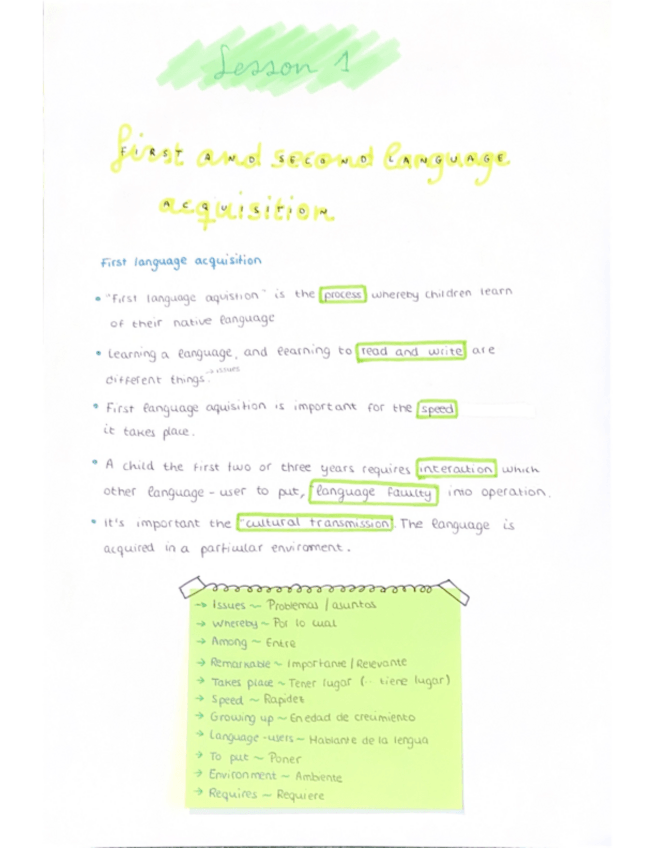 Lesson 1
First and second language
FIRST AND SECOND LANGUAGE
acquisition.
ACQUISITION
First language acquisition
• "First language aquistion" is the process whereby children learn
of their native language
• Learning a language, and learning to read and write are
different things. → issues
• First language aquisition is important for the speed
it takes place.
• A child the first two or three years requires interaction which
other language-user to put, "language faculty" into operation.
• It's important the "cultural transmission". The language is
acquired in a particular enviroment.
→ Issues ~ Problemas / asuntos
→ Whereby ~ Por lo cual
→ Among ~ Entre
→ Remarkable ~ Importante / Relevante
→ Takes place ~ Tener lugar (.. tiene lugar)
→ Speed ~ Rapidez
→ Growing up ~ En edad de crecimiento
→ Language-users ~ Hablante de la lengua
→ To put ~ Poner
→ Environment ~ Ambiente
→ Requires ~ Requiere